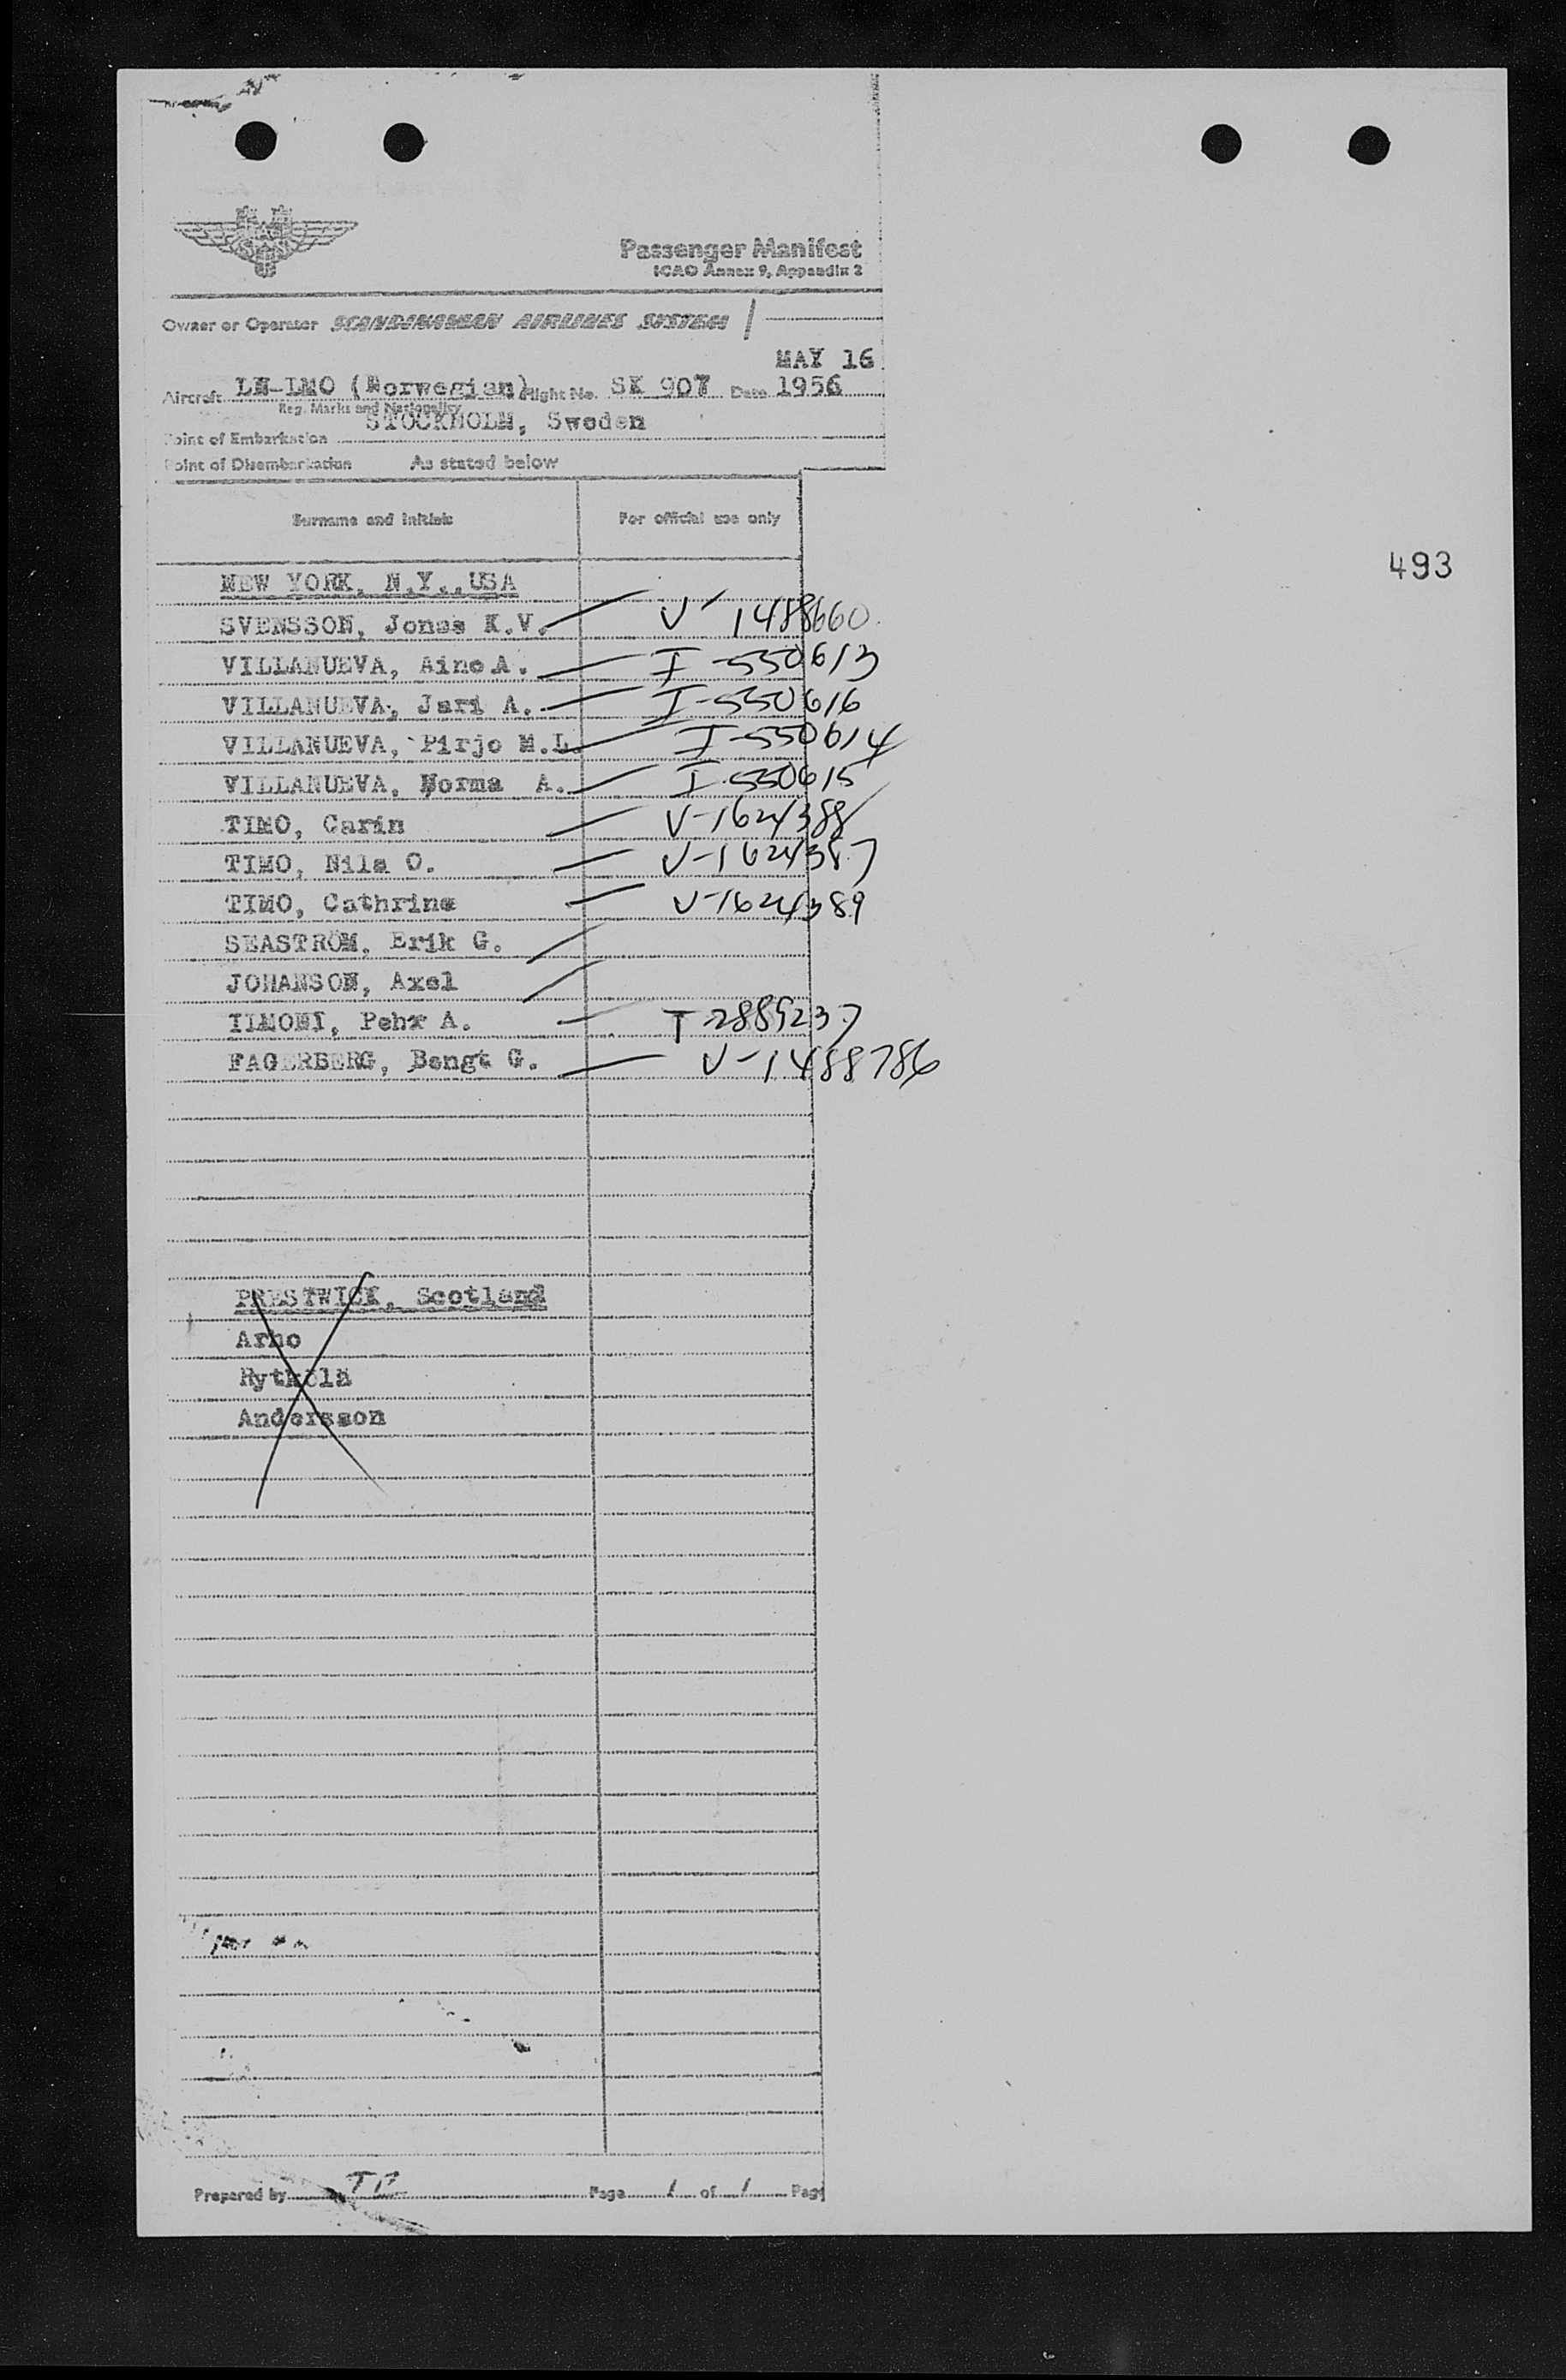 Passenger Manifest
ICAO Annex 9, Appendix 2
Owner or Operator SCANDINAVIAN AIRLINES SYSTEM
MAY 16
Aircraft LN-LMO (Norwegian) Flight No. SK 907 Date 1956
Reg. Marks and Nationality
STOCKHOLM, Sweden
Point of Embarkation
Point of Disembarkation As stated below
Surname and initials For official use only
493
NEW YORK, N.Y., USA
SVENSSON, Jonas K.V. V 1488660
VILLANUEVA, Aino A. I-550613
VILLANUEVA, Jari A. I-550616
VILLANUEVA, Pirjo M.L. I-550614
VILLANUEVA, Norma A. I-550615
TIMO, Carin V-1624388
TIMO, Nils O. V-1624387
TIMO, Cathrine V-1624389
SEASTRÖM, Erik G.
JOHANSON, Axel
Pehr A. T-2889237
FAGERBERG, Bengt G. V-1488786
PRESTWICK, Scotland
Arho
Rytkölä
Andersson
Prepared by TP Page 1 of 1 Page